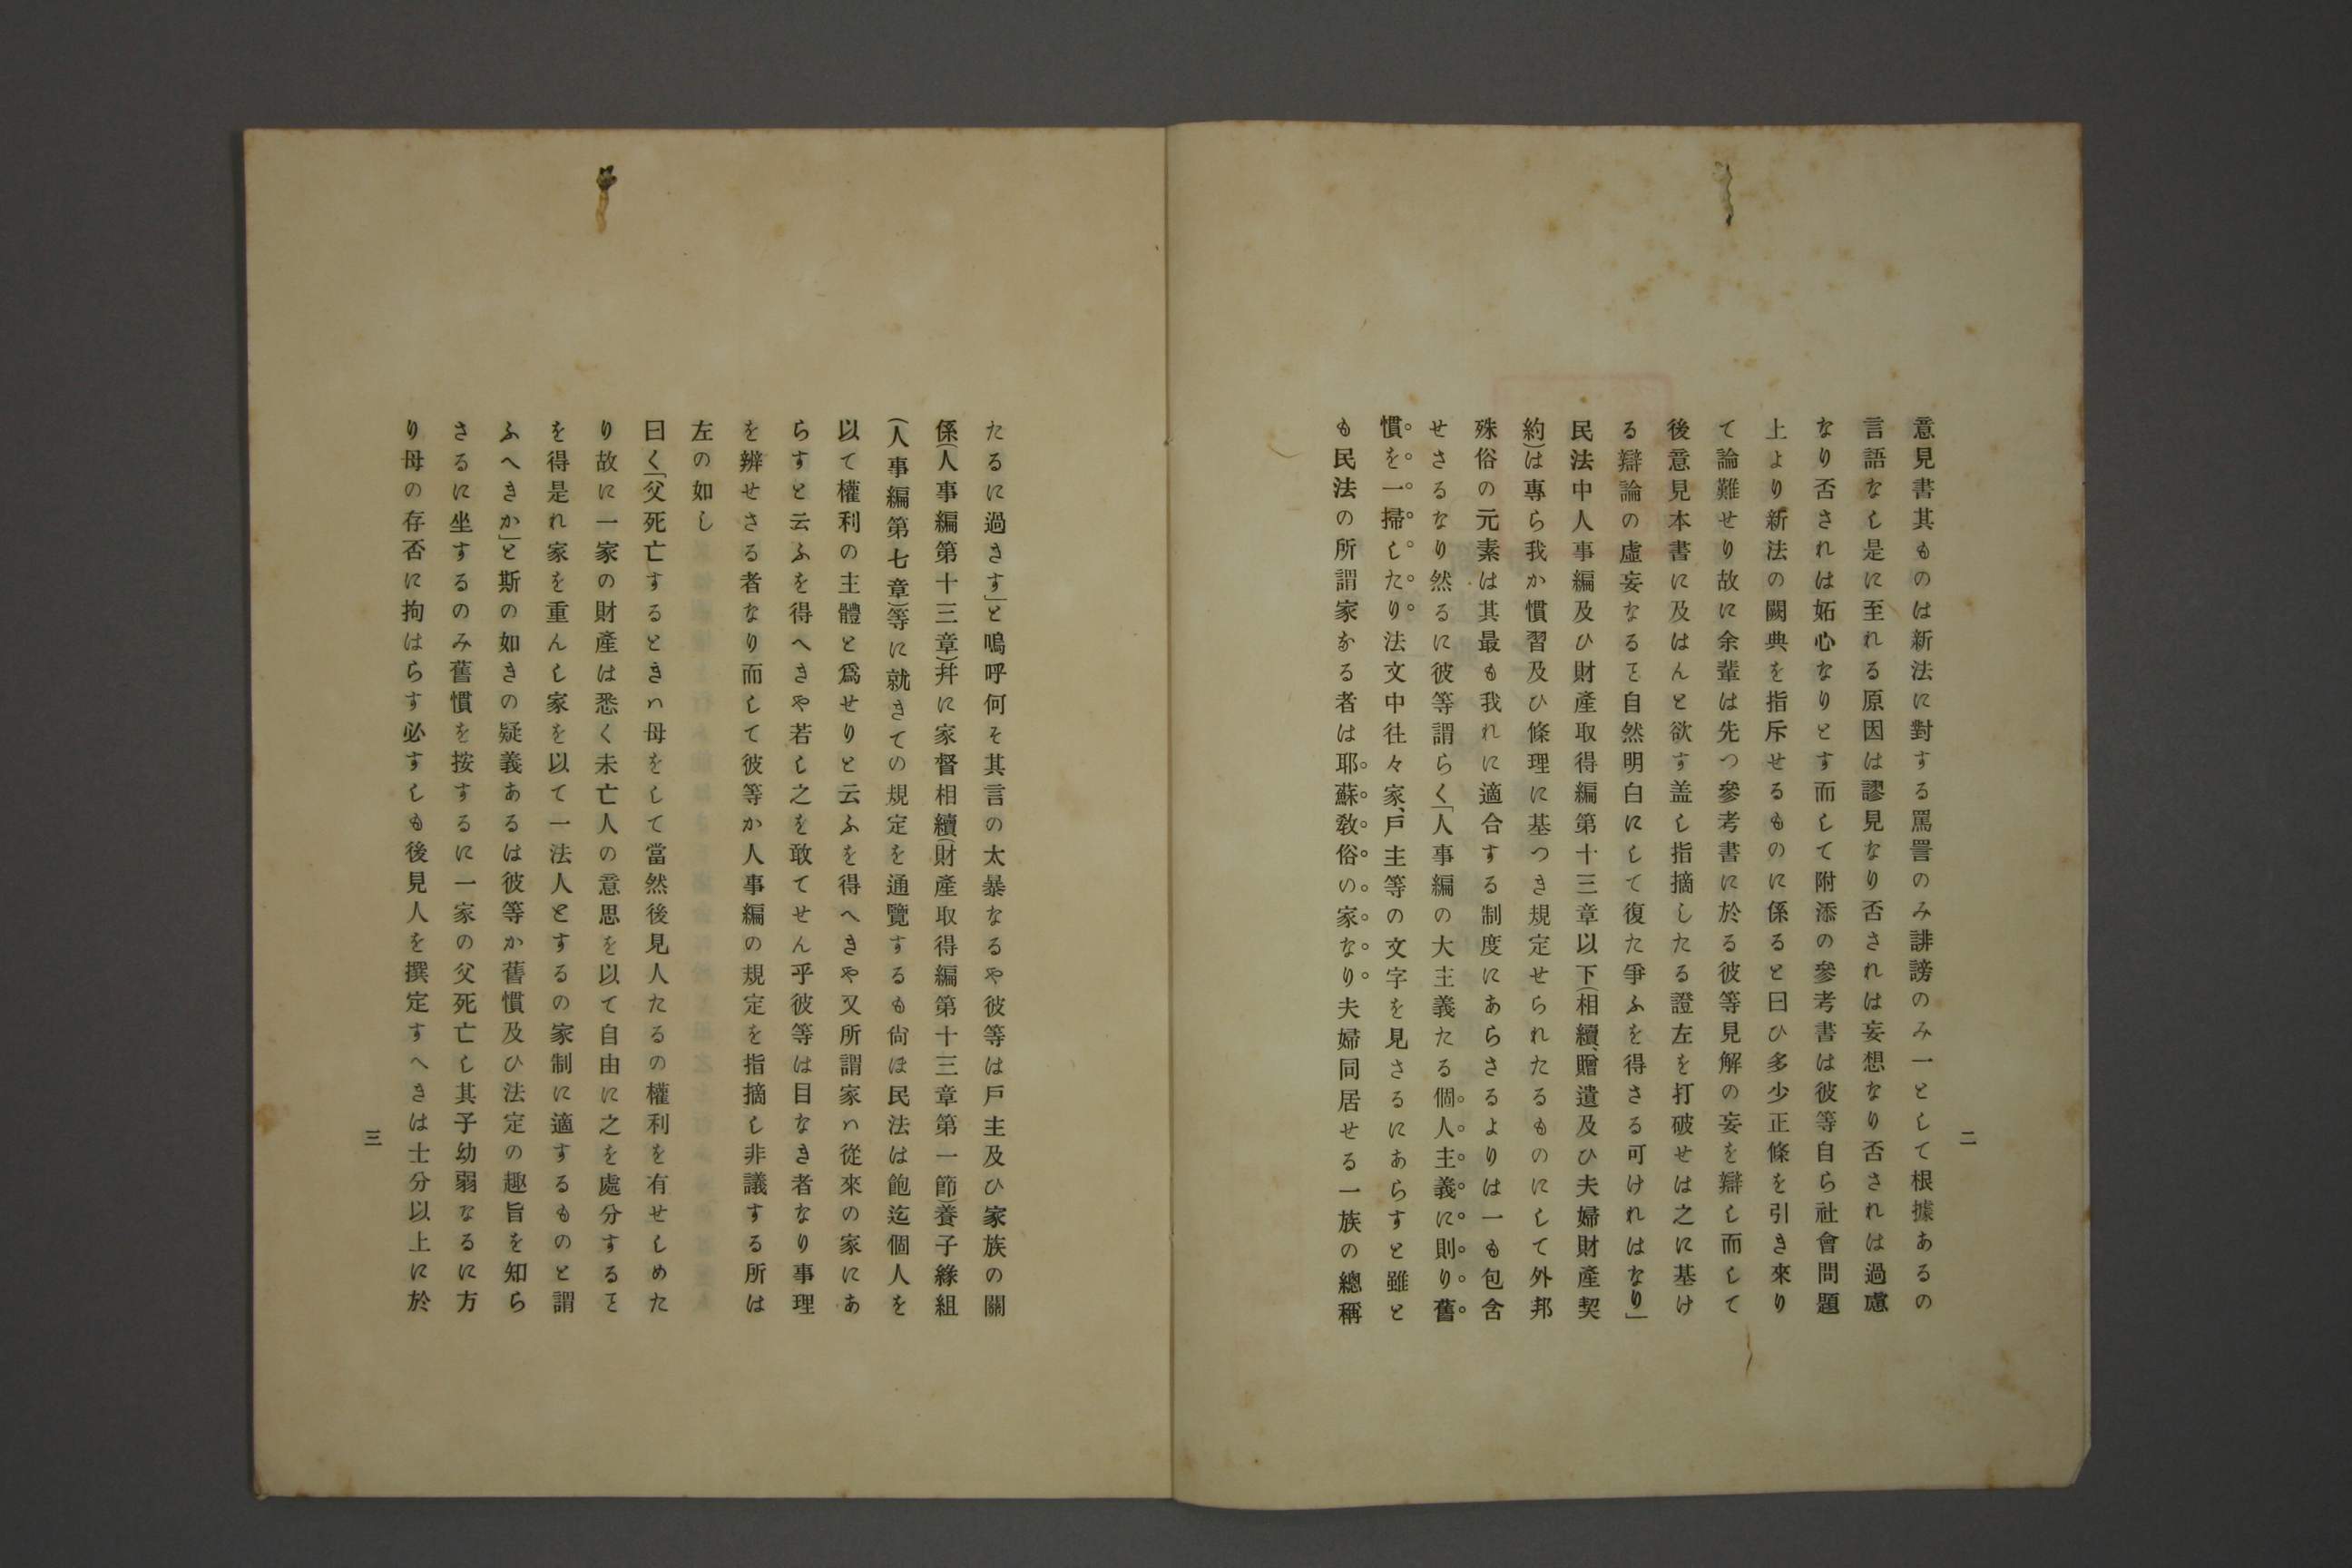 意見書其ものは新法に對する罵詈のみ誹謗のみ一として根據あるの
言語なし是に至れる原因は謬見なり否されは妄想なり否されは過慮
なり否されは妬心なりとす而して附添の參考書は彼等自ら社會問題
上より新法の闕典を指斥せるものに係ると曰ひ多少正條を引き來り
て論難せり故に余輩は先つ參考書に於る彼等見解の妄を辯し而して
後意見本書に及はんと欲す盖し指摘したる證左を打破せは之に基け
る辯論の虛妄なるヿ自然明白にして復た爭ふを得さる可けれはなり」
民法中人事編及ひ財產取得編第十三章以下(相續、贈遺及ひ夫婦財產契
約)は專ら我か慣習及ひ條理に基つき規定せられたるものにして外邦
殊俗の元素は其最も我れに適合する制度にあらさるよりは一も包含
せさるなり然るに彼等謂らく「人事編の大主義たる個人主義に則り舊
慣を一掃したり法文中往々家、戶主等の文字を見さるにあらすと雖と
も民法の所謂家なる者は耶蘇敎俗の家なり夫婦同居せる一族の總稱
二
たるに過きす」と嗚呼何そ其言の太暴なるや彼等は戶主及ひ家族の關
係(人事編第十三章)幷に家督相續(財產取得編第十三章第一節)養子緣組
(人事編第七章)等に就きての規定を通覽するも尙ほ民法は飽迄個人を
以て權利の主體と爲せりと云ふを得へきや又所謂家ハ從來の家にあ
らすと云ふを得へきや若し之を敢てせん乎彼等は目なき者なり事理
を辨せさる者なり而して彼等か人事編の規定を指摘し非議する所は
左の如し
曰く「父死亡するときハ母をして當然後見人たるの權利を有せしめた
り故に一家の財產は悉く未亡人の意思を以て自由に之を處分するヿ
を得是れ家を重んし家を以て一法人とするの家制に適するものと謂
ふへきか」と斯の如きの疑義あるは彼等か舊慣及ひ法定の趣旨を知ら
さるに坐するのみ舊慣を按するに一家の父死亡し其子幼弱なるに方
り母の存否に拘はらす必すしも後見人を撰定すへきは士分以上に於
三